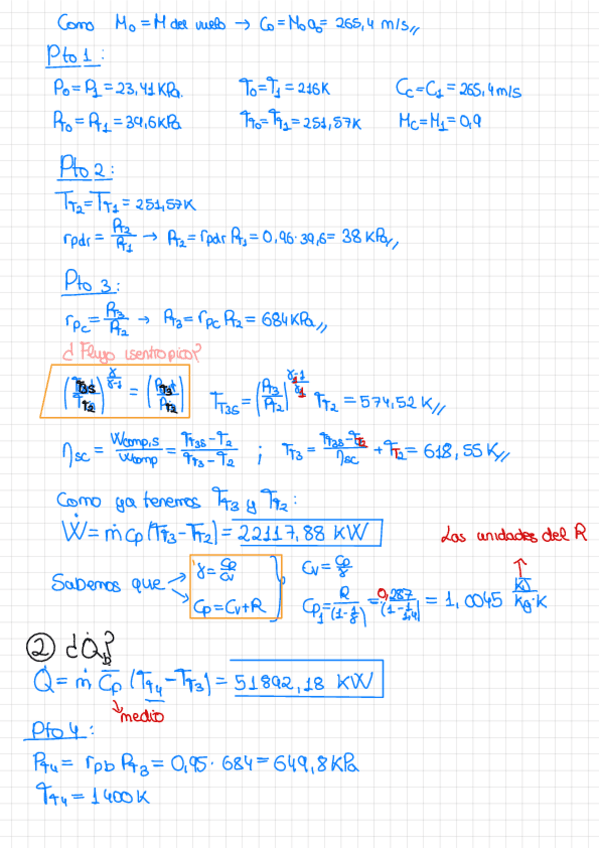 Como M₀ = M del vuelo → C₀ = M₀a₀ = 265,4 m/s,,
Pto 1:
P₀ = P₁ = 23,41 KPa. T₀ = T₁ = 216K C_C = C₁ = 265,4 m/s
P_T0 = P_T1 = 39,6 KPa T_T0 = T_T1 = 251,57K M_C = M₁ = 0,9
Pto 2:
T_T2 = T_T1 = 251,57K
r_pdr = P_T2/P_T1 → P_T2 = r_pdr P_T1 = 0,96·39,6 = 38 KPa,,
Pto 3:
r_pc = P_T3/P_T2 → P_T3 = r_pc P_T2 = 684 KPa,,
¿Flujo isentropico?
(T_T3S/T_T2)^(γ/γ-1) = (P_T3/P_T2) T_T3S = (P_T3/P_T2)^(γ-1/γ) T_T2 = 574,52 K,,
η_sc = W_comp,s/W_comp = (T_T3S - T_2)/(T_T3 - T_2) ; T_T3 = (T_T3S - T_T2)/η_sc + T_T2 = 618,55 K,,
Como ya tenemos T_T3 y T_T2:
Ẇ = ṁ Cp (T_T3 - T_T2) = 22117,88 KW
Las unidades del R
Sabemos que γ = Cp/Cv Cv = Cp/γ
Cp = Cv + R Cp₁ = R/(1-1/γ) = 0,287/(1-1/1,4) = 1,0045 KJ/Kg·K
② ¿Q̇_b?
Q̇ = ṁ C̄p (T_T4 - T_T3) = 51892,18 KW
medio
Pto 4:
P_T4 = r_pb P_T3 = 0,95·684 = 649,8 KPa
T_T4 = 1400 K